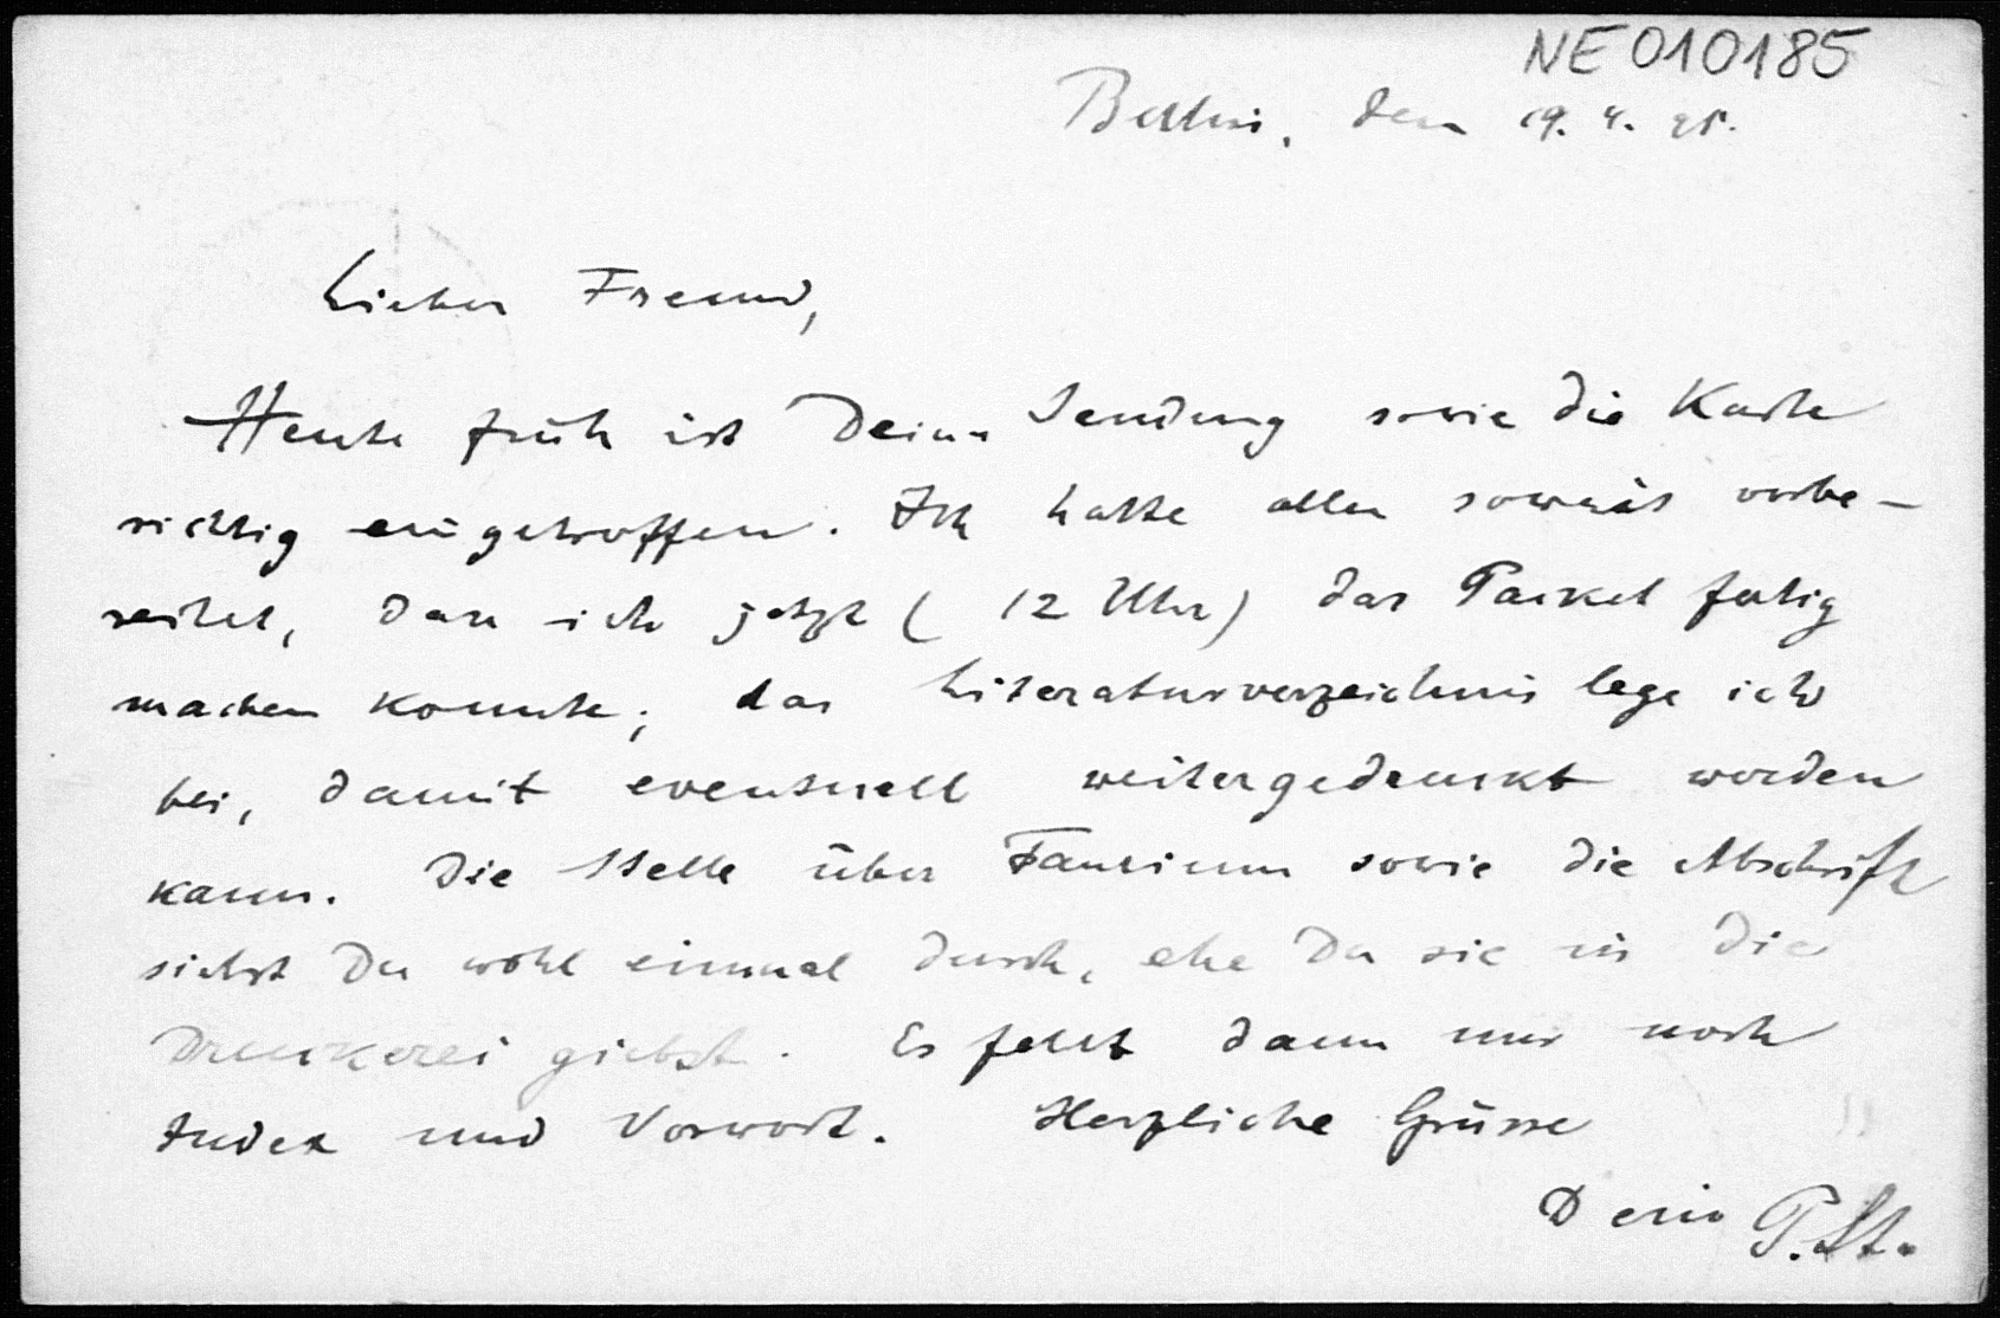 NE010185
Berlin, den 19. 4. 25.
Lieber Freund,
Heute früh ist Deine Sendung sowie die Karte
richtig eingetroffen. Ich hatte alles soweit vorbe-
reitet, dass ich jetzt (12 Uhr) das Packet fertig
machen konnte; das Literaturverzeichnis lege ich
bei, damit eventuell weitergedruckt werden
kann. Die Stelle über sowie die Abschrift
siehst Du wohl einmal durch, ehe Du sie in die
Druckerei giebst. Es fehlt dann nur noch
Index und Vorwort. Herzliche Grüsse
Dein P. St.